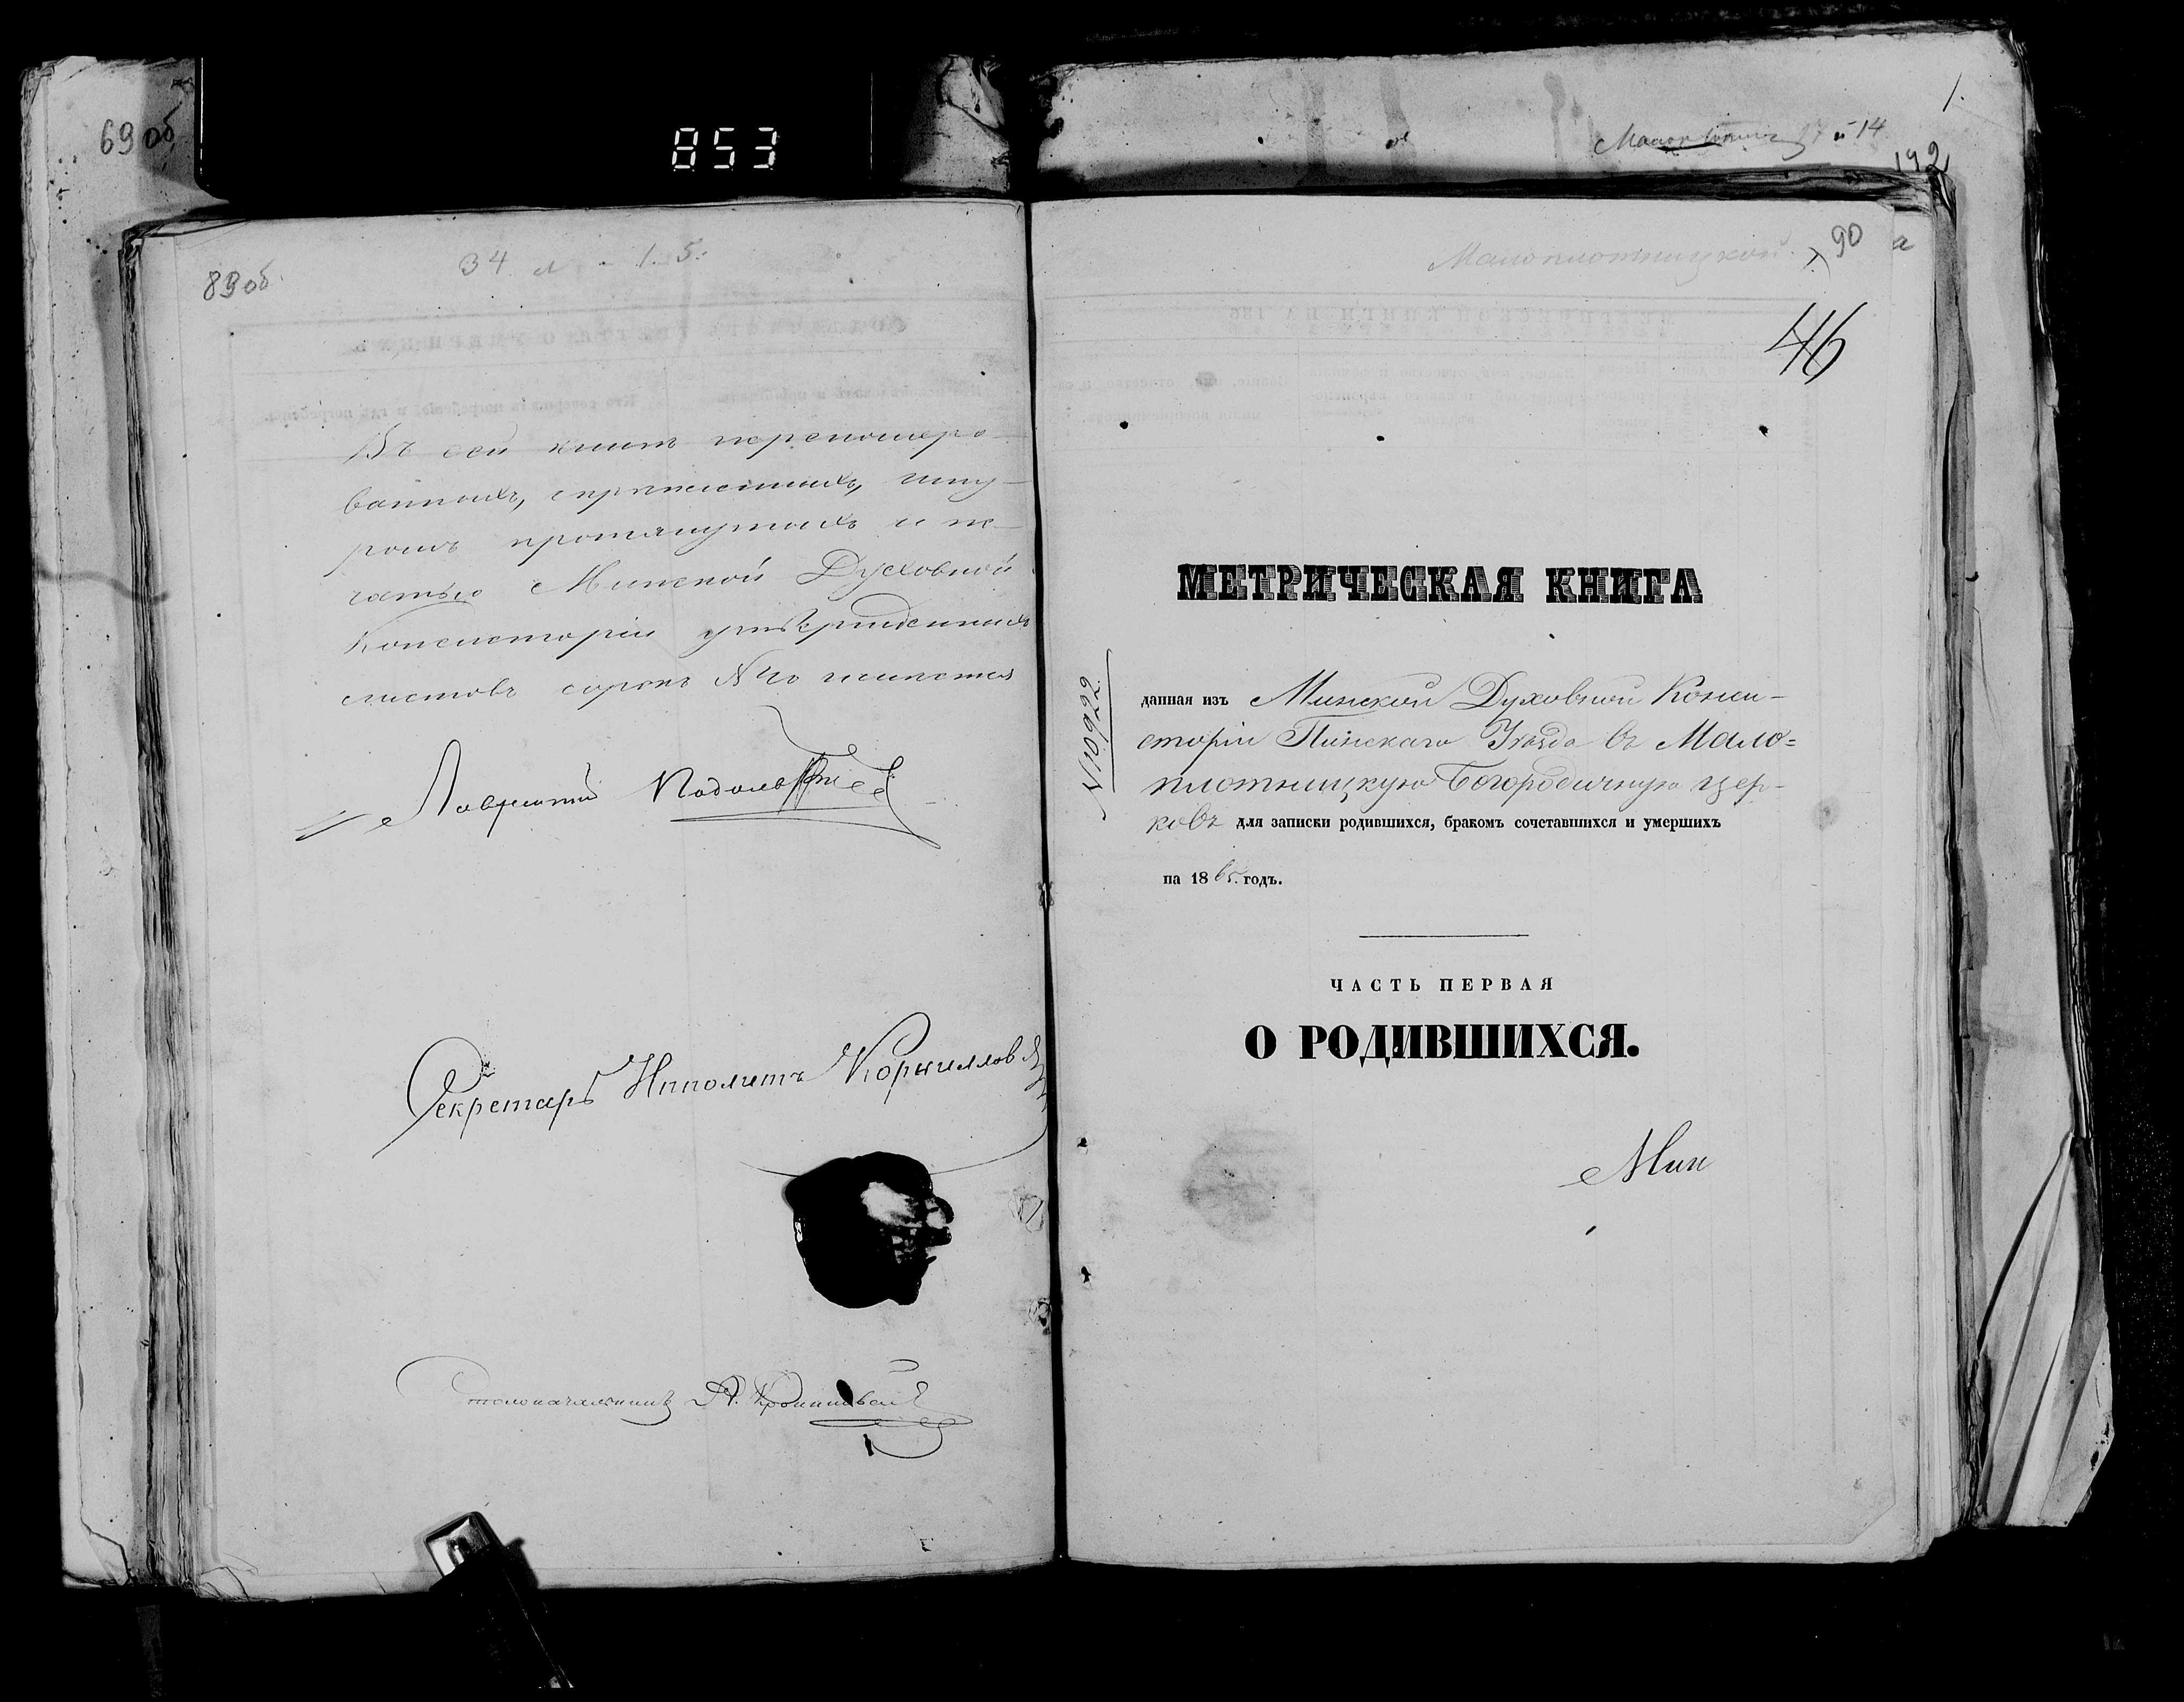 69 об
853
1.
192
89 об.
34 л. 1. 5.
Въ сей книгѣ перенумеро-
ванныхъ, скрепленныхъ, шну-
ромъ протянутыхъ и пе-
чатью Минской Духовной
Консисторіи утвержденныхъ
листовъ сорокъ № 40 имѣется
Секретарь Ипполитъ Корниллов
Столоначальникъ А.
Малоплотницкой
90
а
46
МЕТРИЧЕСКАЯ КНИГА
№ 10922.
данная изъ Минской Духовной Конси-
сторіи Пинскаго Уѣзда въ Мало=
плотницкую Богородичную цер-
ковь для записки родившихся, бракомъ сочетавшихся и умершихъ
на 1865. годъ.
ЧАСТЬ ПЕРВАЯ
О РОДИВШИХСЯ.
Мин